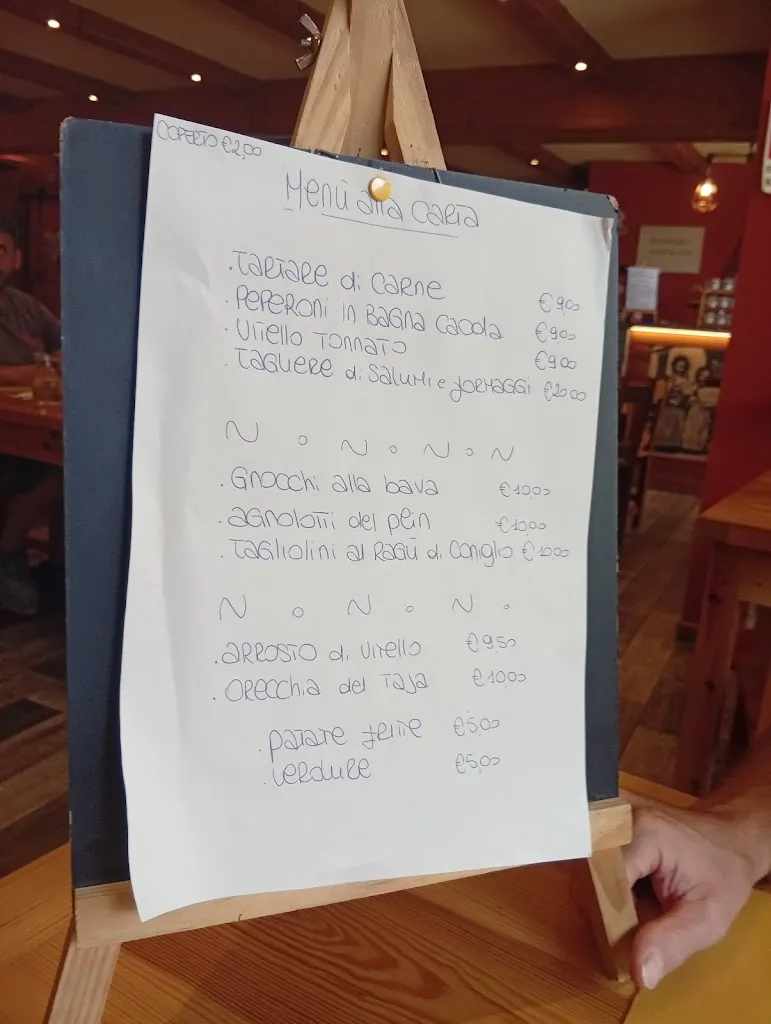 COPERTO €2,00
Menù alla CARTA
. TARTARE di CARNE €9,00
. PEPERONI IN BAGNA CAODA €9,00
. VITELLO TONNATO €9,00
. TAGLIERE di SALUMI e FORMAGGI €20,00
. GNOCCHI alla bava €10,00
. AGNOLOTTI del plin €10,00
. TAGLIOLINI al RAGÙ di CONIGLIO €10,00
. ARROSTO di VITELLO €9,50
. ORECCHIA del TAJA €10,00
. PATATE FRITTE €5,00
. VERDURE €5,00